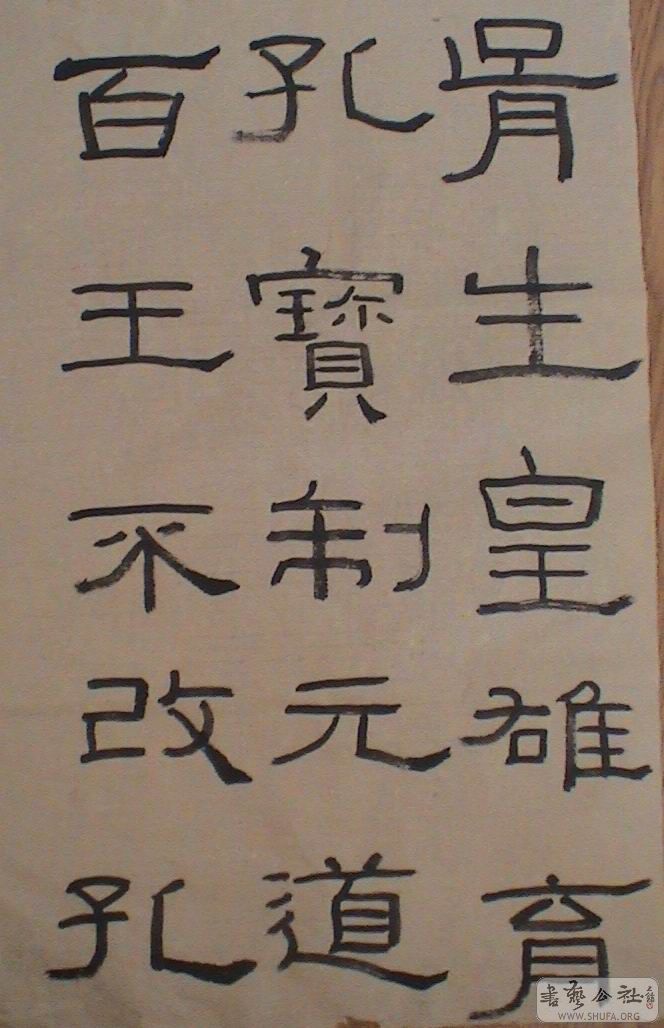 胥生皇雄育
孔寶制元道
百王不改孔
書藝公社
WWW.SHUFA.ORG